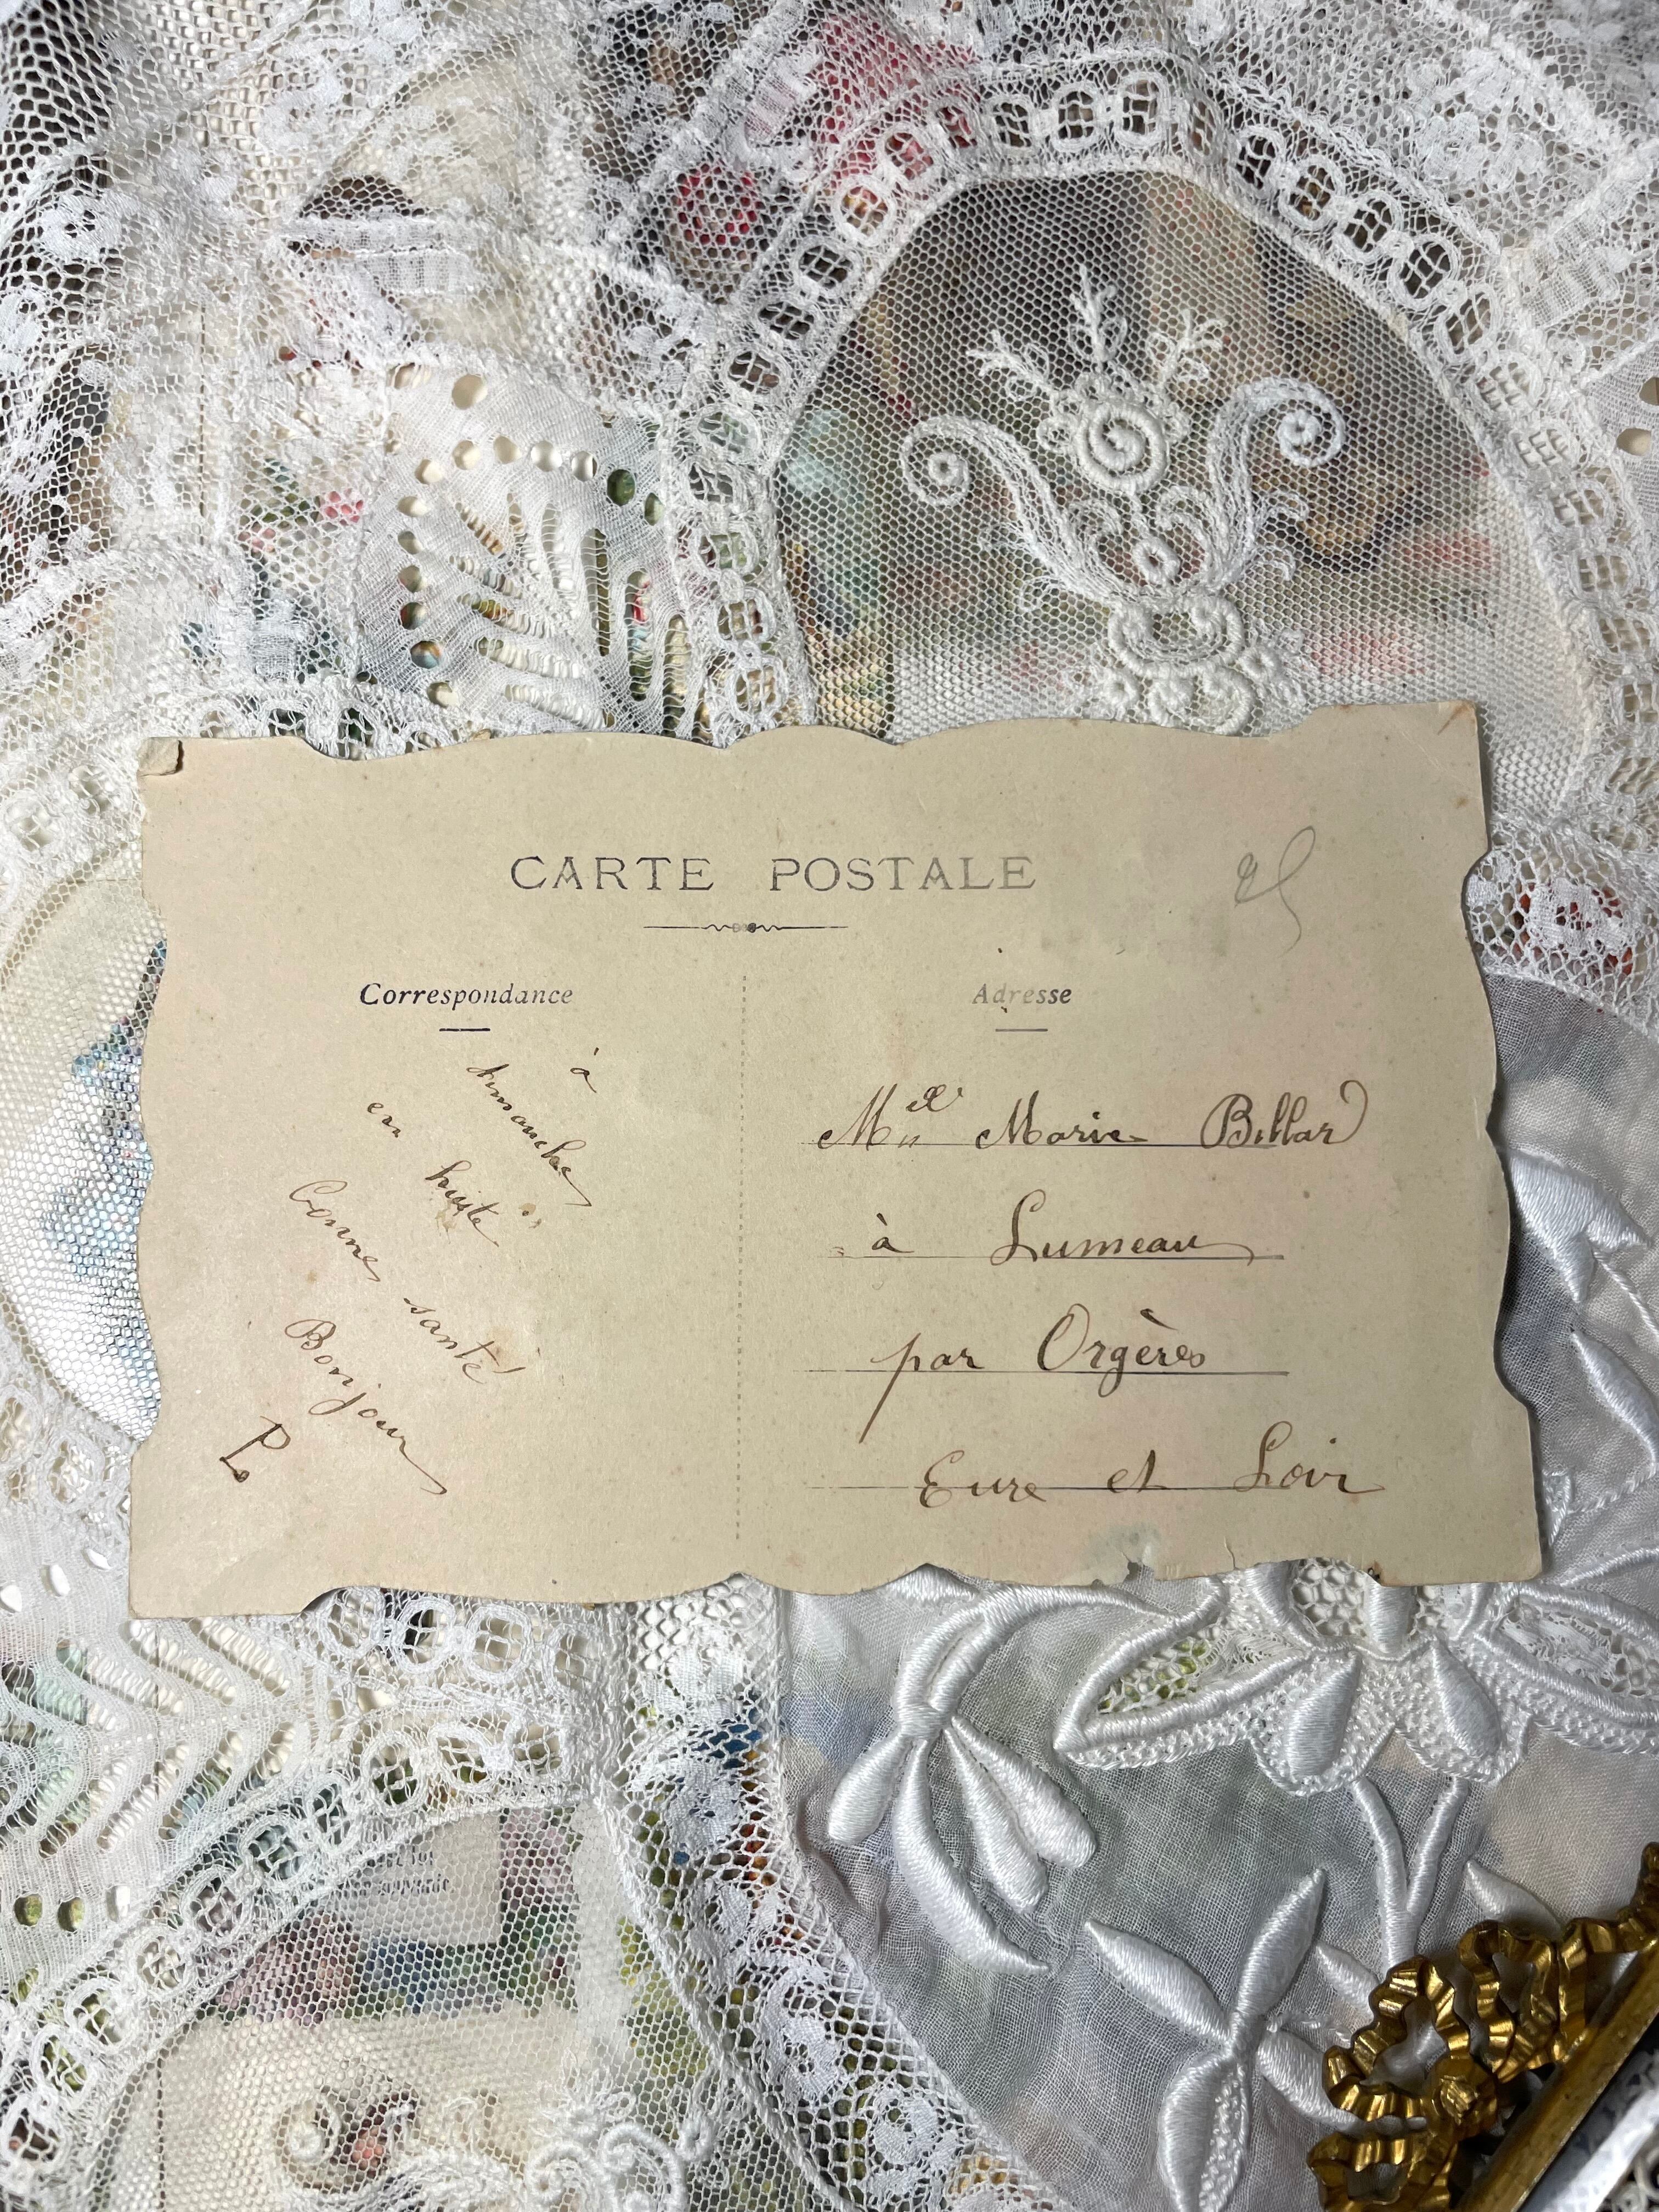 CARTE POSTALE
Correspondance
Adresse
à
dimanche
en huite
Bonne santé
Bonjour
P
Melle Marie Billard
à Lumeau
par Orgères
Eure et Loir